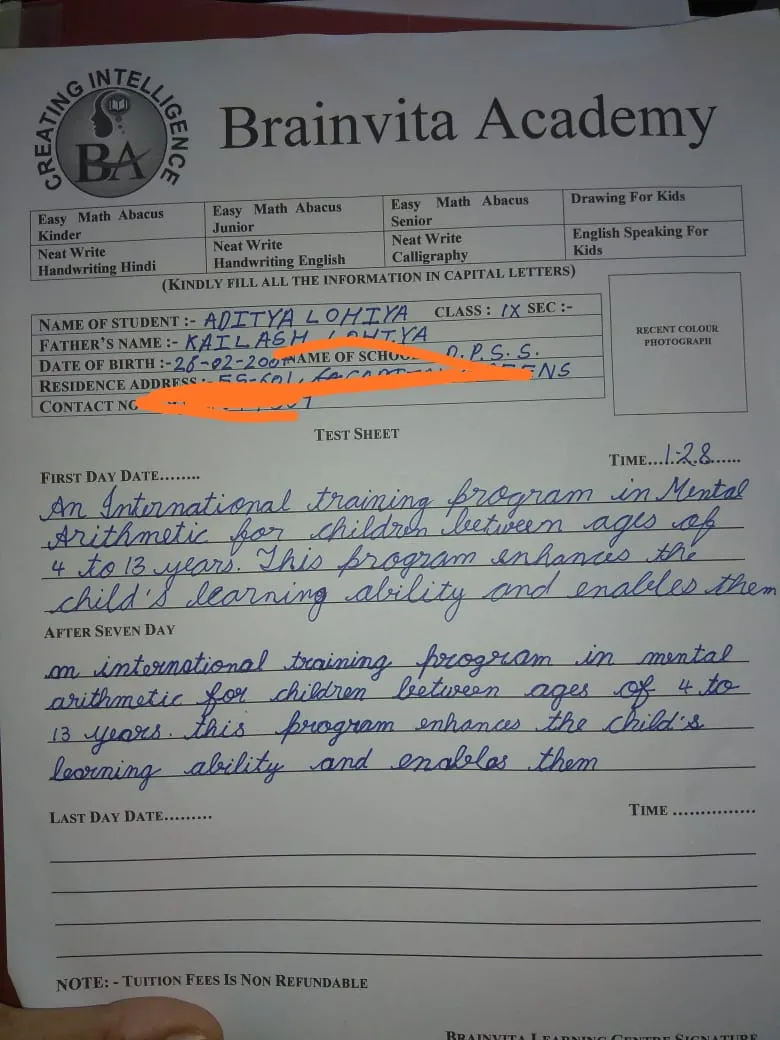 CREATING INTELLIGENCE
BA
Brainvita Academy
Easy Math Abacus Kinder
Easy Math Abacus Junior
Easy Math Abacus Senior
Drawing For Kids
Neat Write Handwriting Hindi
Neat Write Handwriting English
Neat Write Calligraphy
English Speaking For Kids
(KINDLY FILL ALL THE INFORMATION IN CAPITAL LETTERS)
NAME OF STUDENT :- ADITYA LOHIYA CLASS : IX SEC :-
FATHER'S NAME :- KAILASH LOHIYA
DATE OF BIRTH :- 28-02- NAME OF SCHOOL D.P.S.S.
RESIDENCE ADDRESS :-
CONTACT NO
RECENT COLOUR PHOTOGRAPH
TEST SHEET
FIRST DAY DATE........ TIME...1:28......
An International training program in Mental
Arithmetic for children between ages of
4 to 13 years. This program enhances the
child's learning ability and enables them
AFTER SEVEN DAY
an international training program in mental
arithmetic for children between ages of 4 to
13 years. this program enhances the child's
learning ability and enables them
LAST DAY DATE......... TIME ...............
NOTE: - TUITION FEES IS NON REFUNDABLE
BRAINVITA LEARNING CENTRE SIGNATURE